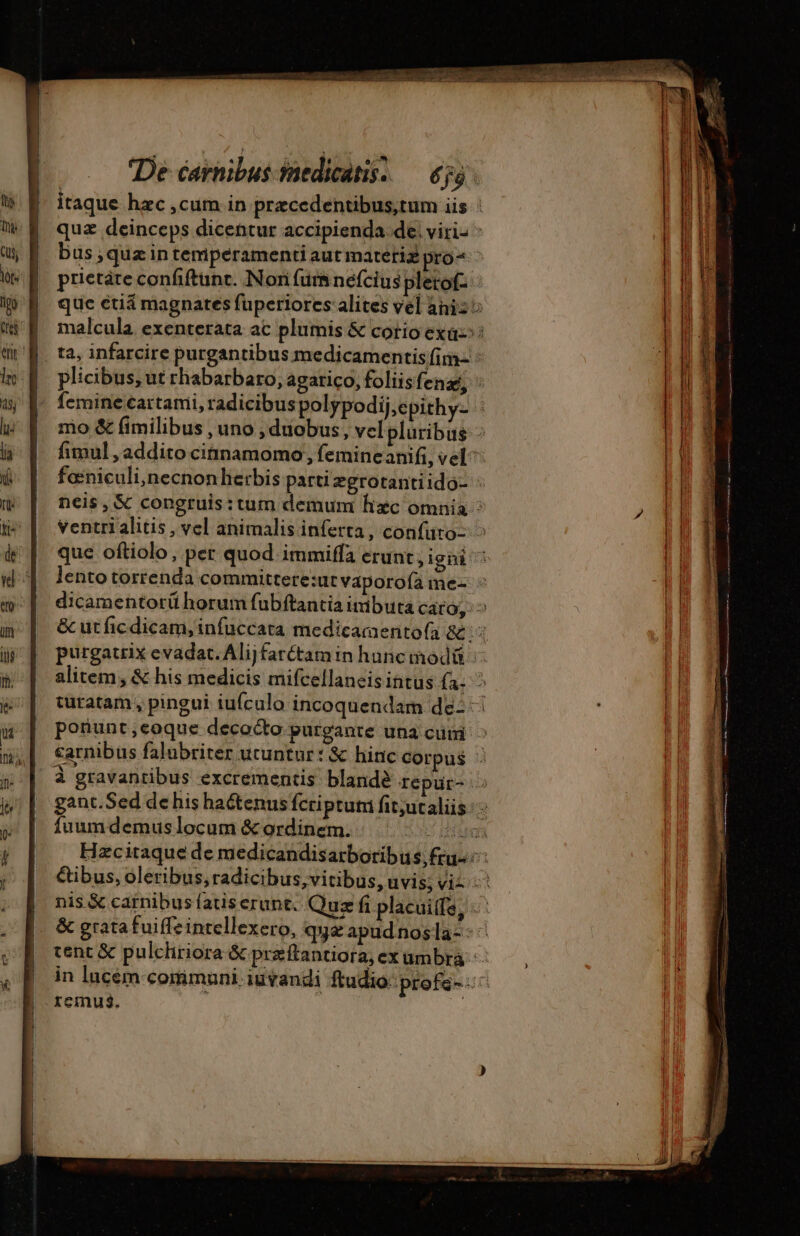 De carnibus medicatis.
itaque hæc, cum in præcedentibus, tum iis
quæ deinceps dicentur accipienda de viri-
bus, quæ in temperamenti aut materiæ pro-
prietate consistunt. Non sum nescius pleros-
que etiã magnates superiores alites vel ani-
malcula exenterata ac plumis & corio exu-
ta, infarcire purgantibus medicamentis sim-
plicibus, ut rhabarbaro, agarico, foliis senæ,
semine cartami, radicibus polypodij, epithy-
mo & similibus, uno, duobus, vel pluribus
simul, addito cinnamomo, semine anisi, vel
fœniculi, necnon herbis parti ægrotanti ido-
neis, & congruis: tum demum hæc omnia
ventri alitis, vel animalis inserta, consuto-
que ostiolo, per quod immissa erunt, igni
lento torrenda committere: ut vaporosa me-
dicamentorũ horum substantia imbuta caro,
& ut sic dicam, insuccata medicamentosa &
purgatrix evadat. Alij farctam in hunc modũ
alitem, & his medicis miscellaneis intus sa-
turatam, pingui iusculo incoquendam de-
ponunt, eoque decocto purgante una cum
carnibus salubriter utuntur: & hinc corpus
à gravantibus excrementis blandè repur-
gant. Sed de his hactenus scriptum sit, ut aliis
suum demus locum & ordinem.
Hæc itaque de medicandis arboribus, fru-
ctibus, oleribus, radicibus, vitibus, uvis, vi-
nis & carnibus satis erunt. Quæ si placuisse,
& grata fuisse intellexero, quæ apud nos la-
tent & pulchriora & præstantiora, ex umbra
in lucem communi iuvandi studio profe-
remus.